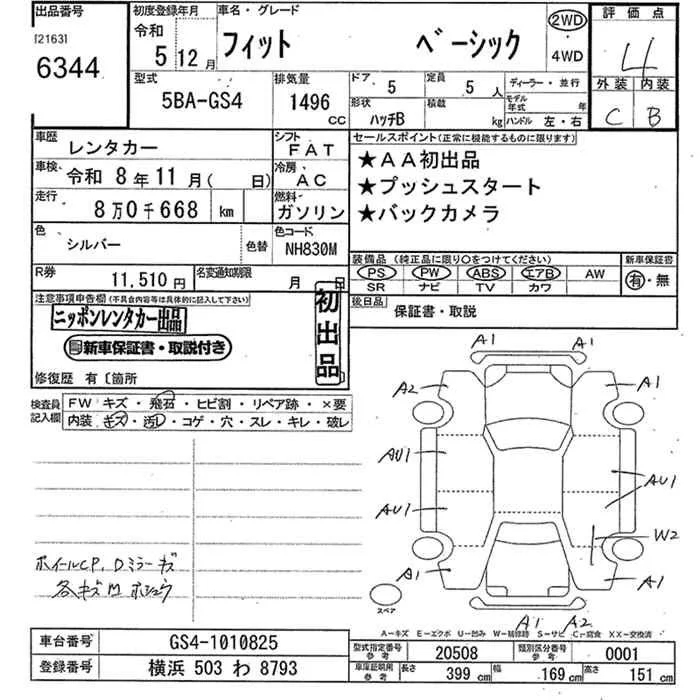 出品番号 初度登録年月 車名・グレード 2WD 評価点
[2163] 令和 フィット ベーシック 4
6344 5 12月 4WD 外装 内装
型式 排気量 ドア 5 定員 5人 ディーラー・並行 C B
5BA-GS4 1496 CC 形状 ハッチB 積載 kg モデル年式 年 ハンドル 左・右
車歴 レンタカー シフト FAT セールスポイント(正常に機能するものに限ります)
車検 令和 8年 11月( 日) 冷房 AC ★AA初出品
走行 8万0千668 km 燃料 ガソリン ★プッシュスタート
★バックカメラ
色 シルバー 色替 色コード NH830M
装備品(純正品に限り○をつけてください) 新車保証書
R券 11,510円 名変通知期限 月 日 PS PW ABS エアB AW 有・無
SR ナビ TV カワ
注意事項申告欄(不具合内容等は具体的に記入して下さい) 初出品 後日品 保証書・取説
ニッポンレンタカー出品
新車保証書・取説付き
修復歴 有〔箇所
検査員記入欄 FW キズ・飛石・ヒビ割・リペア跡・×要
内装 キズ・汚レ・コゲ・穴・スレ・キレ・破レ
A1 A1
A2 A1
AU1 AU1
AU1 W2
A1 A1
A1 A2
スペア
ホイールCP、Dミラーキズ
各キズ
A-キズ E-エクボ U-凹み W-補修跡 S-サビ C-腐食 XX-交換済
車台番号 GS4-1010825 型式指定番号 参考 20508 類別区分番号 参考 0001
登録番号 横浜 503 わ 8793 車庫証明用 参考 長さ 399 cm 幅 169 cm 高さ 151 cm